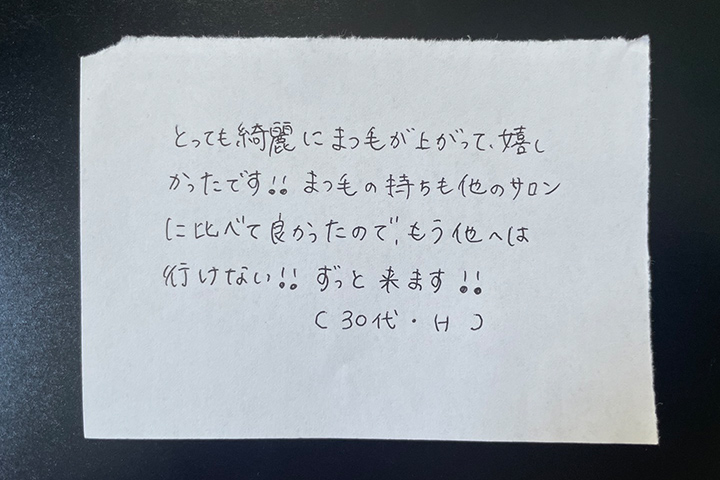 とっても綺麗にまつ毛が上がって、嬉し
かったです!! まつ毛の持ちも他のサロン
に比べて良かったので、もう他へは
行けない!! ずっと来ます!!
(30代・H)